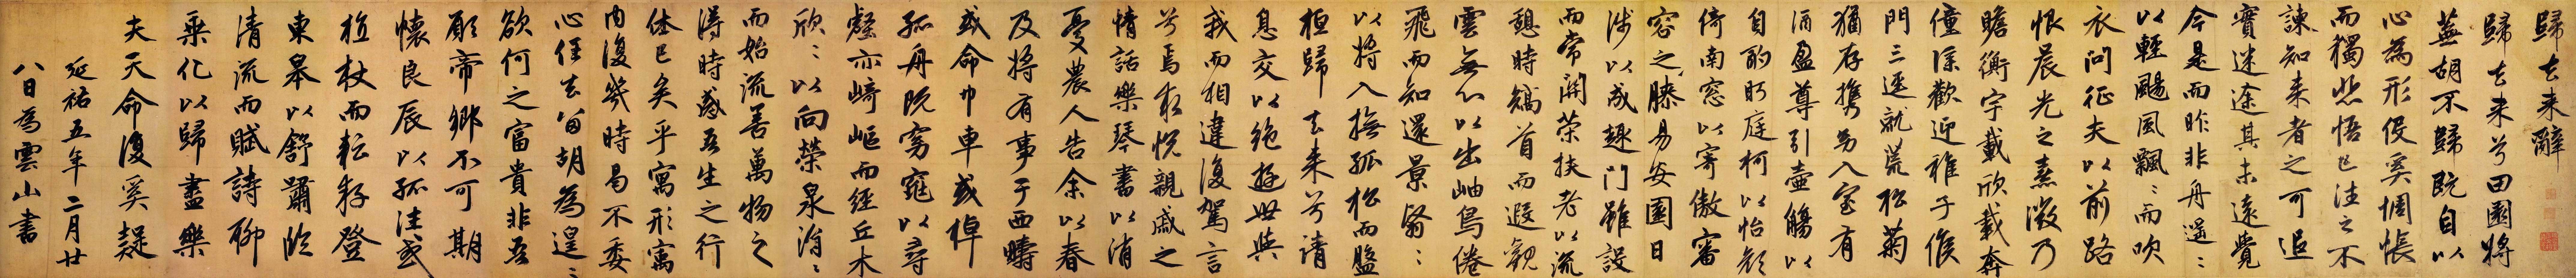 歸去来辭
歸去来兮田園將
蕪胡不歸既自以
心為形役奚惆悵
而獨悲悟已往之不
諫知来者之可追
實迷途其未遠覺
今是而昨非舟遥〻
以輕颺風飄〻而吹
衣問征夫以前路
恨晨光之熹微乃
瞻衡宇載欣載奔
僮僕歡迎稚子候
門三逕就荒松菊
猶存攜幼入室有
酒盈尊引壺觴以
自酌眄庭柯以怡顔
倚南窓以寄傲審
容之膝易安園日
涉以成趣門雖設
而常關策扶老以流
憩時矯首而遐觀
雲無心以出岫鳥倦
飛而知還景翳〻
以將入撫孤松而盤
桓歸去来兮請
息交以絶遊世與
我而相違復駕言
兮焉求悅親戚之
情話樂琴書以消
憂農人告余以春
及將有事于西疇
或命巾車或棹
孤舟既窈窕以尋
壑亦崎嶇而經丘木
欣〻以向榮泉涓〻
而始流善萬物之
得時感吾生之行
休已矣乎寓形寓
内復幾時曷不委
心任去留胡為遑〻
欲何之富貴非吾
願帝鄉不可期
懷良辰以孤往或
植杖而耘耔登
東皋以舒嘯臨
清流而賦詩聊
乘化以歸盡樂
夫天命復奚疑
延祐五年二月廿
八日為雲山書